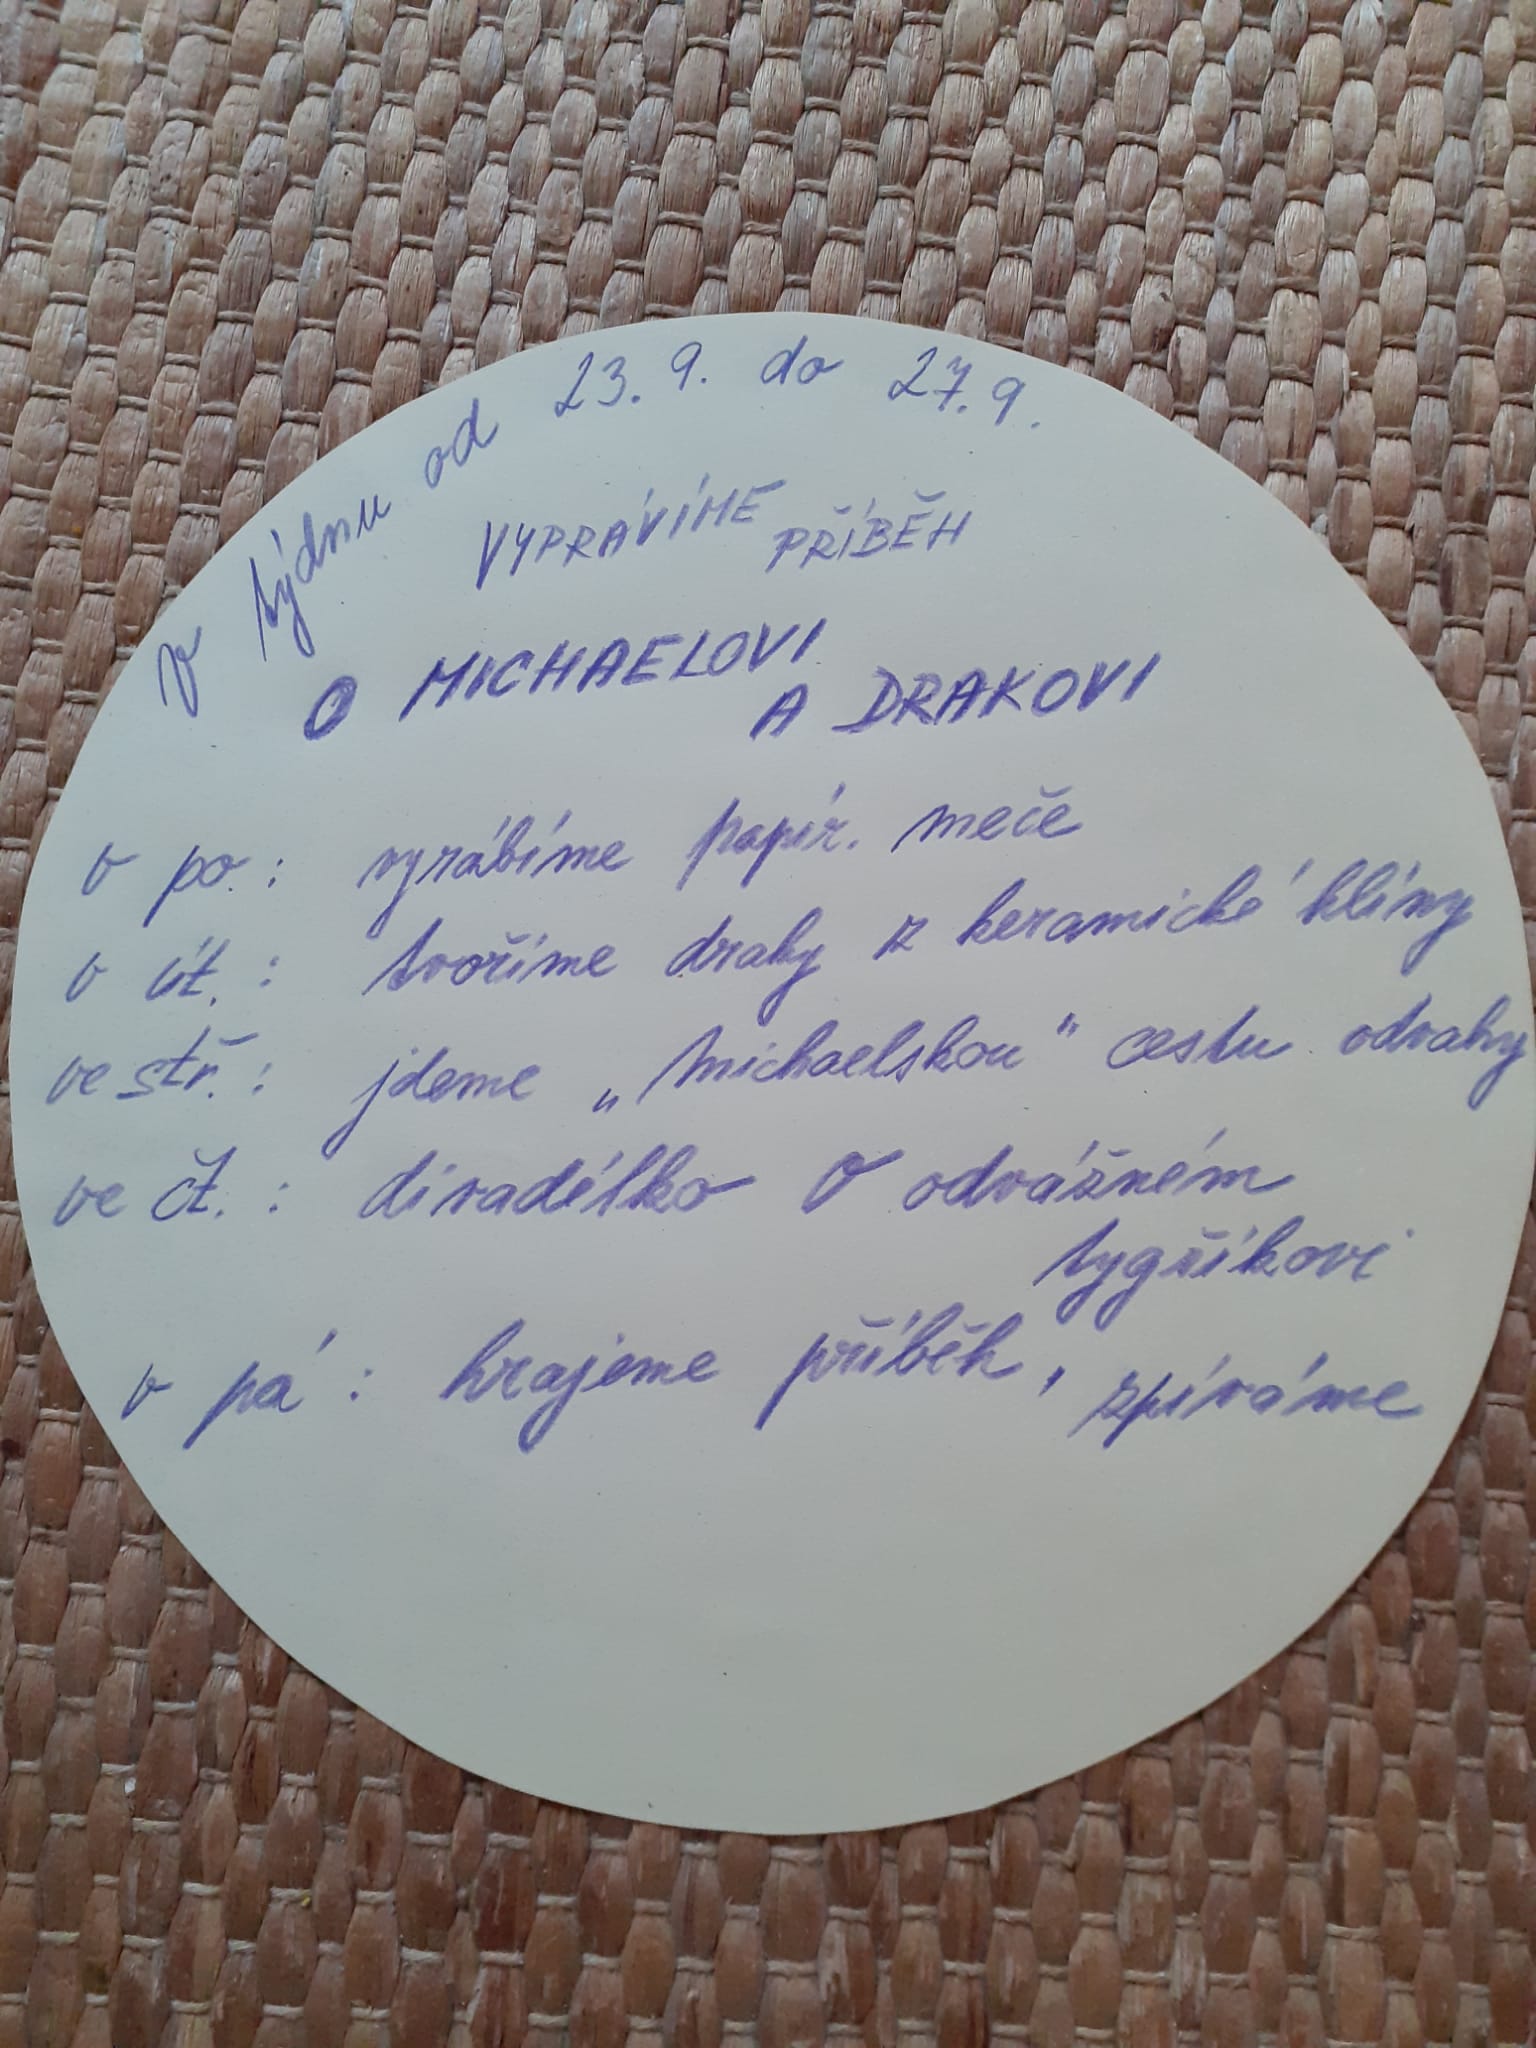 V týdnu od 23. 9. do 27. 9.
VYPRÁVÍME PŘÍBĚH
O MICHAELOVI
A DRAKOVI
v po.: vyrábíme papír. meče
v út.: tvoříme draky z keramické hlíny
ve stř.: jdeme „Michaelskou" cestu odvahy
ve čt.: divadélko O odvážném
tygříkovi
v pá: hrajeme příběh, zpíváme